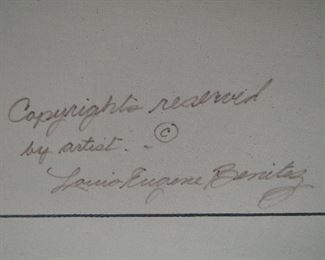 Copyrights reserved
by artist. - ©
Louis Eugene Benitez